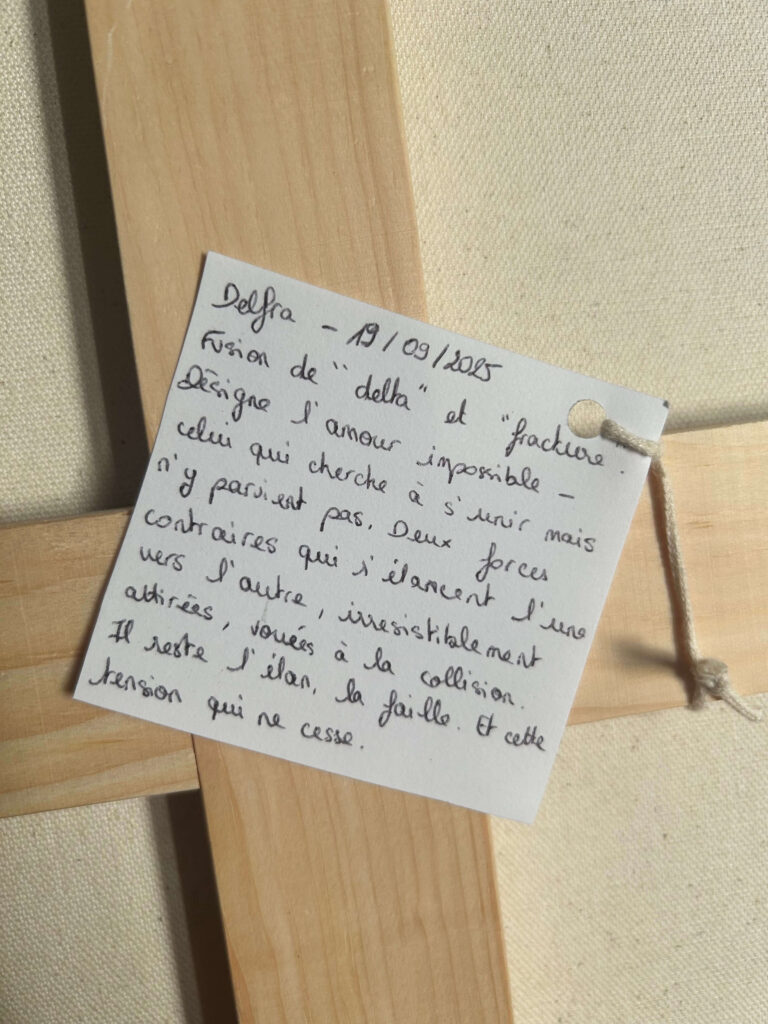 Delfra - 19/09/2025
Fusion de "delta" et "fracture".
Désigne l'amour impossible -
celui qui cherche à s'unir mais
n'y parvient pas. Deux forces
contraires qui s'élancent l'une
vers l'autre, irresistiblement
attirées, vouées à la collision.
Il reste l'élan, la faille. Et cette
tension qui ne cesse.